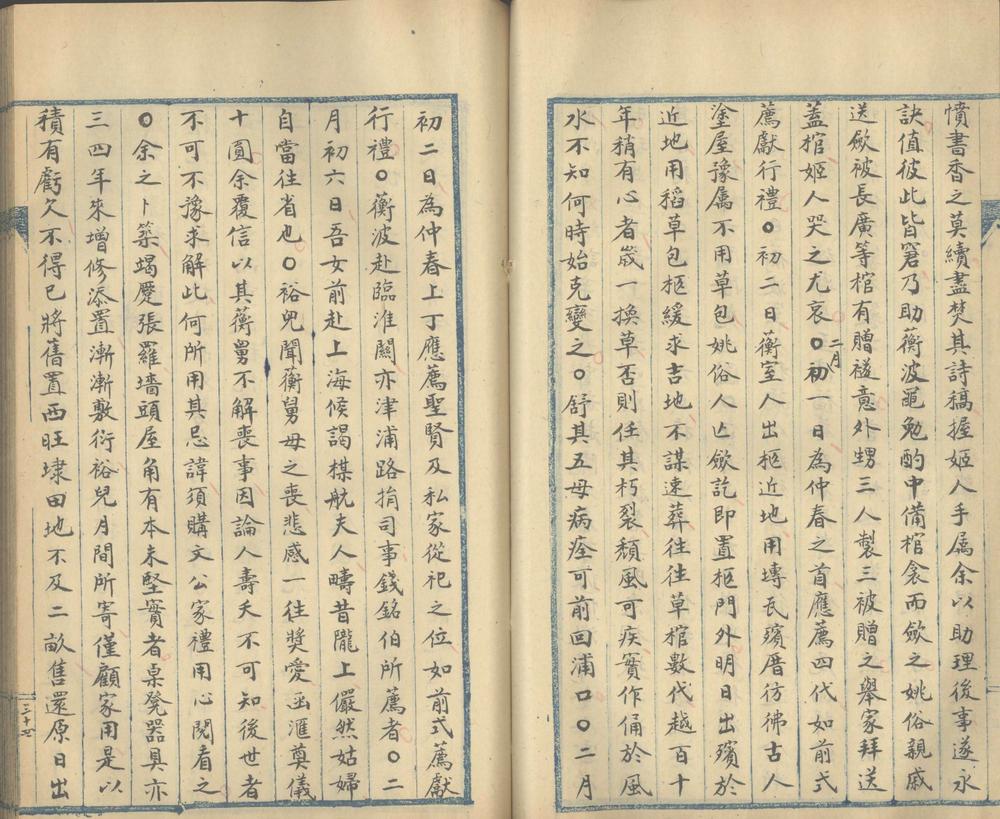 憤書香之莫續盡焚其詩稿握姬人手屬余以助理後事遂永
訣值彼此皆窘乃助衡波黽勉酌中備棺衾而歛之姚俗親戚
送歛被長廣等棺有贈襚意外甥三人製三被贈之舉家拜送
蓋棺姬人哭之尤哀〇二月初一日為仲春之首應薦四代如前式
薦獻行禮〇初二日蘅室人出柩近地用塼瓦殯厝彷彿古人
塗屋豫属不用草包姚俗人亡歛訖即置柩門外明日出殯於
近地用稻草包柩緩求吉地不謀速葬往往草棺數代越百十
年稍有心者歲一換草否則任其朽裂頹風可疾實作俑於風
水不知何時始克變之〇舒其五母病痊可前回浦口〇二月
初二日為仲春上丁應薦聖賢及私家從祀之位如前式薦獻
行禮〇蘅波赴臨淮關亦津浦路捐司事錢銘伯所薦者〇二
月初六日吾女前赴上海候謁楳航夫人疇昔隴上儼然姑婦
自當往省也〇裕兒聞蘅舅母之喪悲感一往獎愛函滙奠儀
十圓余覆信以其蘅舅不解喪事因論人壽夭不可知後世者
不可不豫求解此何所用其忌諱須購文公家禮用心閱看之
〇余之卜築竭蹷張羅墻頭屋角有本未堅實者桌凳器具亦
三四年來增修添置漸漸敷衍裕兒月間所寄僅顧家用是以
積有虧欠不得已將舊置西旺埭田地不及二畝售還原日出
三十七